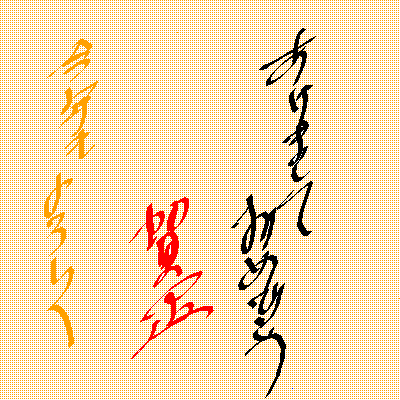 あけまして
おめでとう
賀正
今年も
よろしく